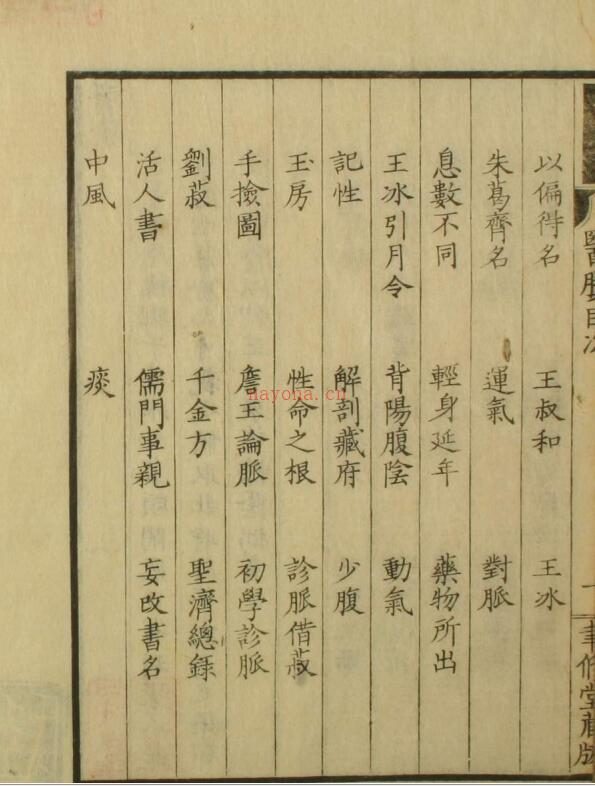 醫賸目次
聿修堂藏版
以偏得名 王叔和 王冰
朱葛齊名 運氣 對脈
息數不同 輕身延年 藥物所出
王冰引月令 背陽腹陰 動氣
記性 解剖藏府 少腹
玉房 性命之根 診脈借菽
手撿圖 詹王論脈 初學診脈
劉菽 千金方 聖濟總錄
活人書 儒門事親 妄改書名
中風 痰
nayona.cn